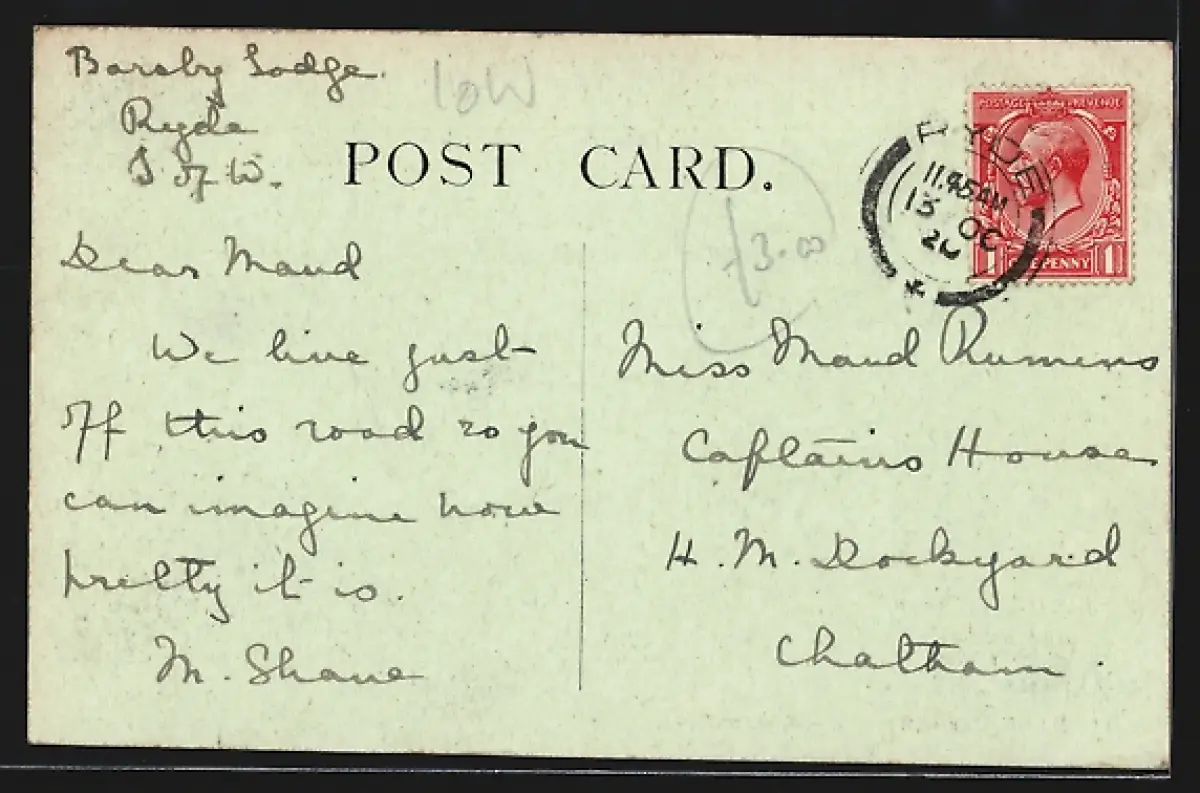 Barsby Lodge.
Ryde
I of W.
IOW
POST CARD.
Dear Maud
We live just
off this road so you
can imagine how
pretty it is.
M. Shane
3.00
POSTAGE REVENUE
ONE PENNY
1 1
RYDE
11.45 AM
13 OC
20
Miss Maud Rumens
Captains House
H. M. Dockyard
Chatham.